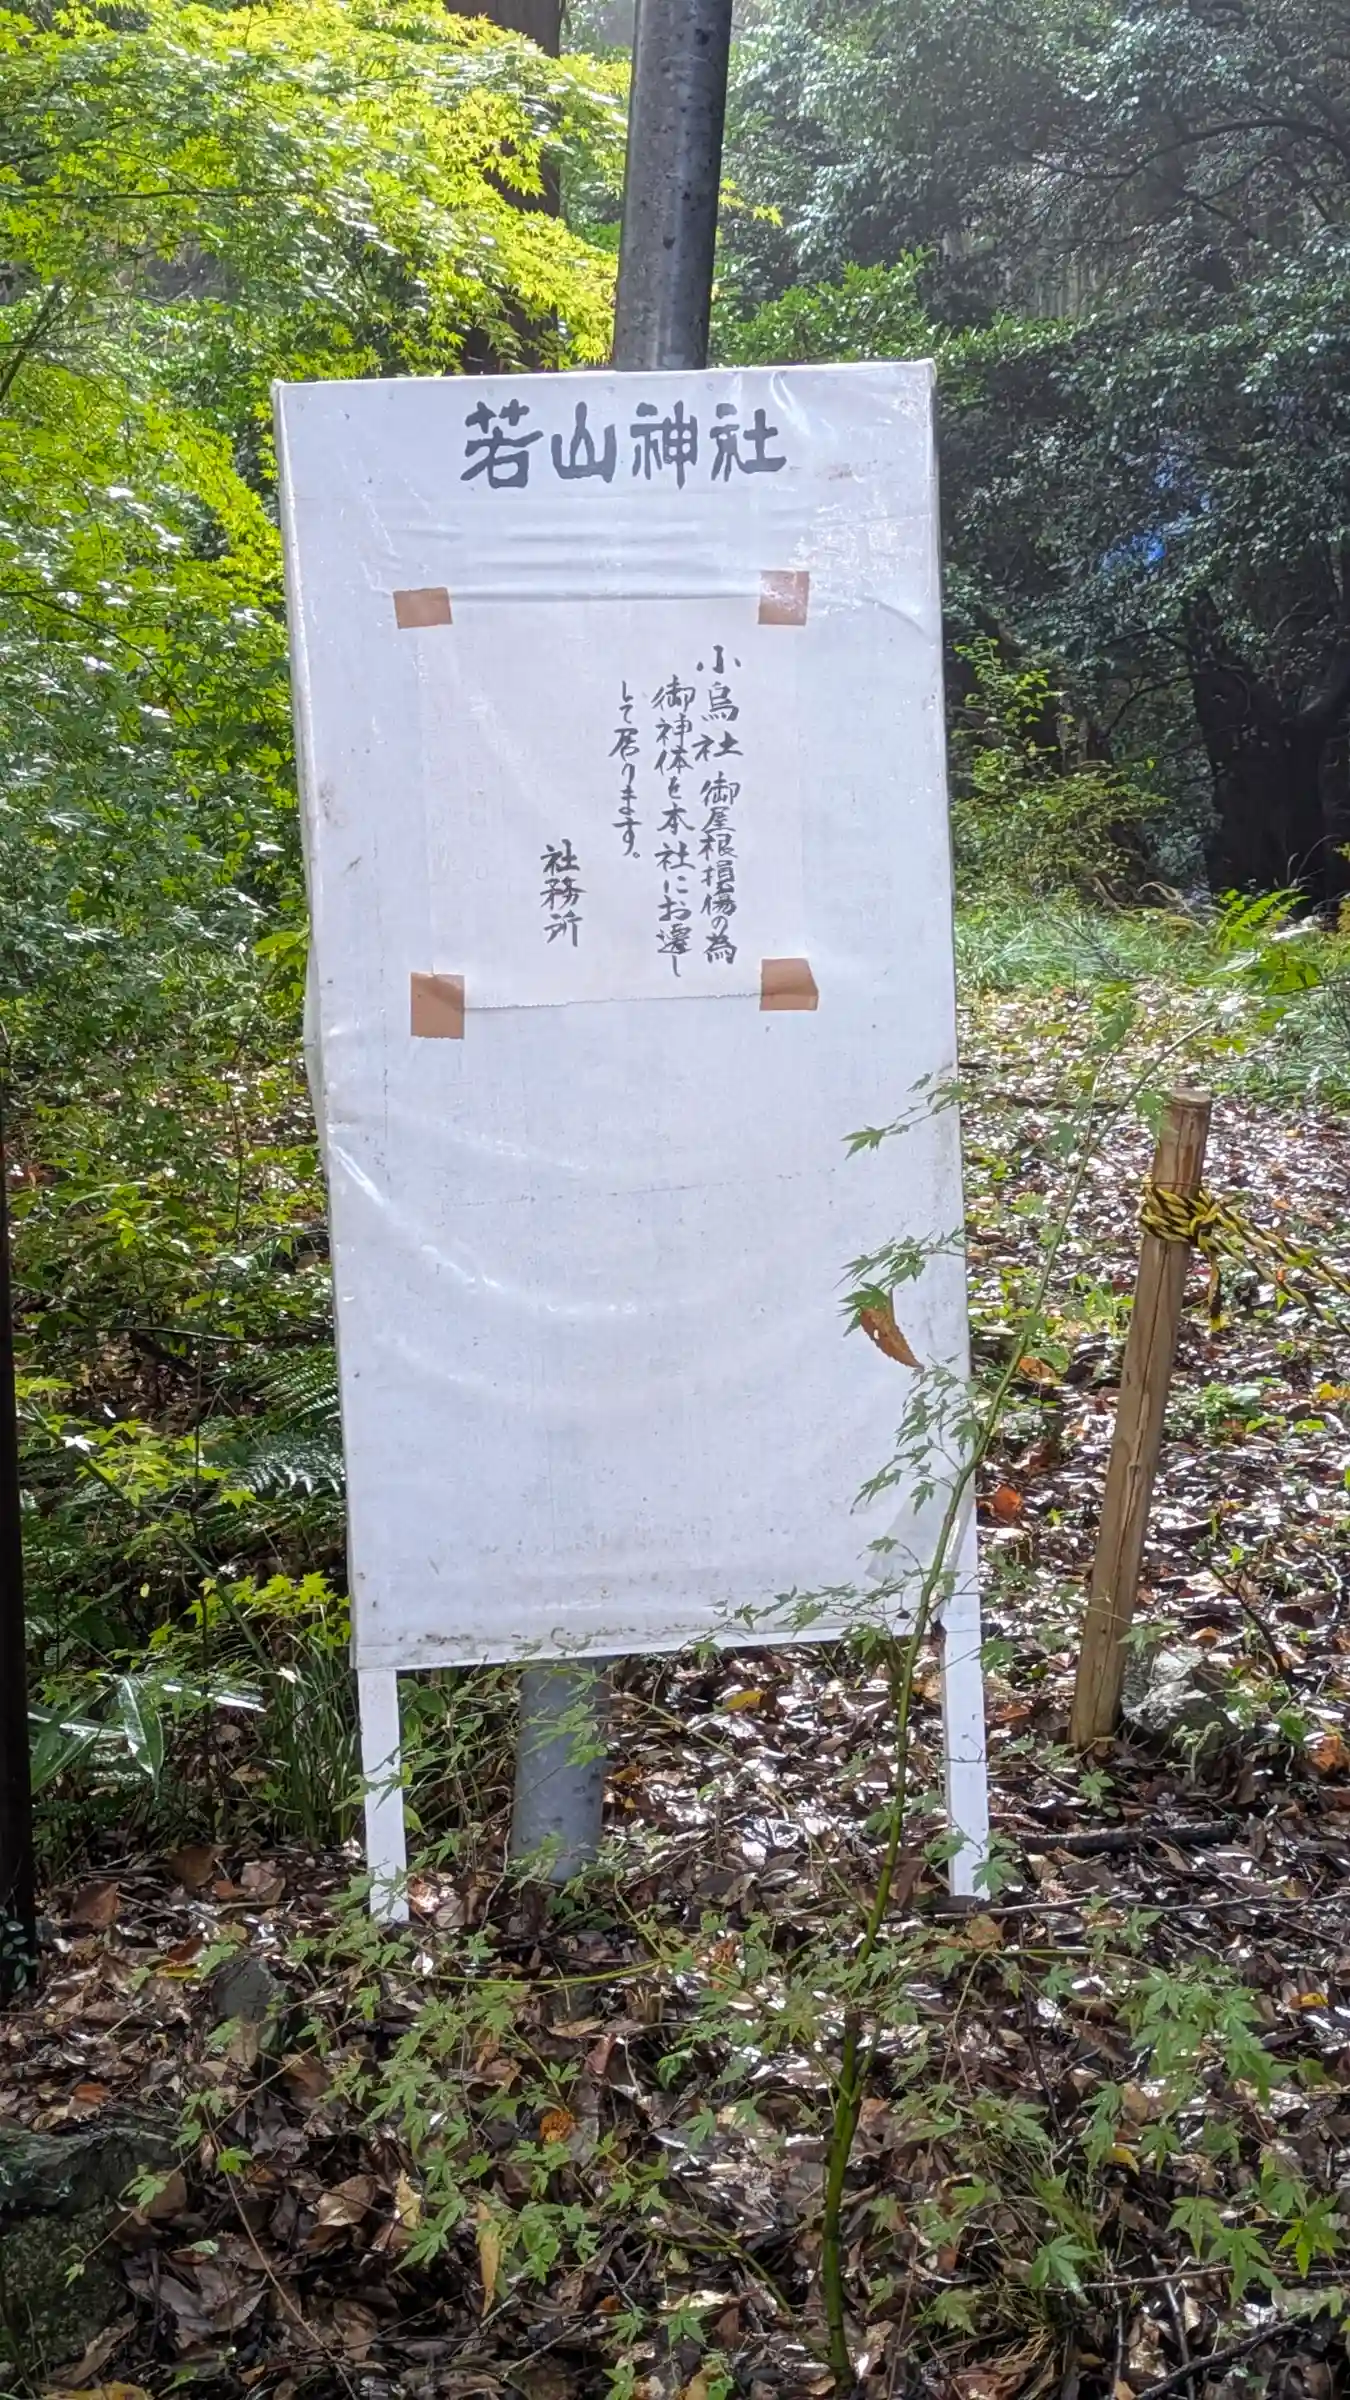 若山神社
小烏社 御屋根損傷の為
御神体を本社にお遷し
して居ります。
社務所